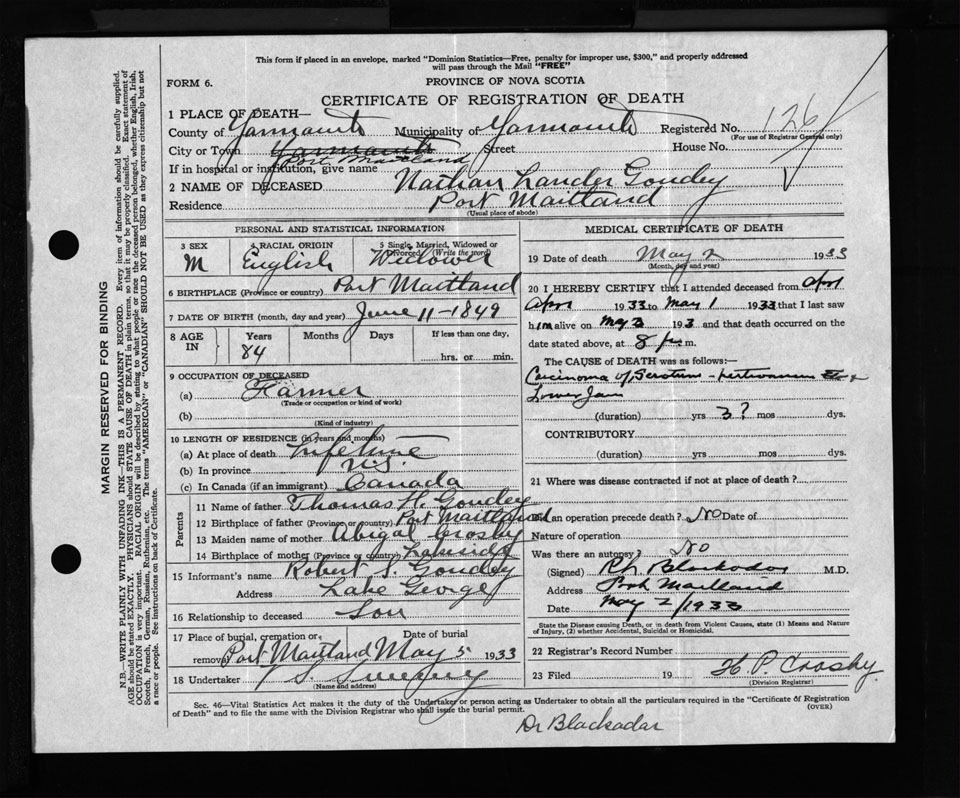 This form if placed in an envelope, marked "Dominion Statistics—Free, penalty for improper use, $300," and properly addressed
will pass through the Mail "FREE"
FORM 6.
PROVINCE OF NOVA SCOTIA
CERTIFICATE OF REGISTRATION OF DEATH
1 PLACE OF DEATH—
County of Yarmouth Municipality of Yarmouth Registered No. 126
(For use of Registrar General only)
City or Town Yarmouth Street House No.
Port Maitland
If in hospital or institution, give name
2 NAME OF DECEASED Nathan Lander Goudey
Residence Port Maitland
(Usual place of abode)
PERSONAL AND STATISTICAL INFORMATION
3 SEX 4 RACIAL ORIGIN 5 Single, Married, Widowed or Divorced (Write the word)
M English Widower
6 BIRTHPLACE (Province or country) Port Maitland
7 DATE OF BIRTH (month, day and year) June 11 - 1849
8 AGE IN Years Months Days If less than one day,
84 hrs. or min.
9 OCCUPATION OF DECEASED
(a) Farmer
(Trade or occupation or kind of work)
(b)
(Kind of industry)
10 LENGTH OF RESIDENCE (in years and months)
(a) At place of death Life time
(b) In province N.S.
(c) In Canada (if an immigrant) Canada
Parents
11 Name of father Thomas H. Goudey
12 Birthplace of father (Province or country) Port Maitland
13 Maiden name of mother Abigal Crosby
14 Birthplace of mother (Province or country)
15 Informant's name Robert S. Goudey
Address Lake George
16 Relationship to deceased Son
17 Place of burial, cremation or removal Date of burial
Port Maitland May 5 1933
18 Undertaker S. Sweeny
(Name and address)
MEDICAL CERTIFICATE OF DEATH
19 Date of death May 2 1933
(Month, day and year)
20 I HEREBY CERTIFY that I attended deceased from April
April 1933 to May 1 1933 that I last saw
him alive on May 2 193 and that death occurred on the
date stated above, at 8 p m.
The CAUSE of DEATH was as follows:—
Carcinoma of Scrotum - &
Lower Jaw
(duration) yrs 3? mos dys.
CONTRIBUTORY
(duration) yrs mos dys.
21 Where was disease contracted if not at place of death?
Did an operation precede death? No Date of
Nature of operation
Was there an autopsy? No
(Signed) Blackadar M.D.
Address Port Maitland
Date May 2/1933
State the Disease causing Death, or in death from Violent Causes, state (1) Means and Nature
of Injury, (2) whether Accidental, Suicidal or Homicidal.
22 Registrar's Record Number
23 Filed 19 H P Crosby
(Division Registrar)
Sec. 46—Vital Statistics Act makes it the duty of the Undertaker or person acting as Undertaker to obtain all the particulars required in the "Certificate of Registration
of Death" and to file the same with the Division Registrar who shall issue the burial permit.
(OVER)
Dr Blackadar
MARGIN RESERVED FOR BINDING
N.B.—WRITE PLAINLY WITH UNFADING INK—THIS IS A PERMANENT RECORD. Every item of information should be carefully supplied.
AGE should be stated EXACTLY. PHYSICIANS should STATE CAUSE OF DEATH in plain terms, so that it may be properly classified. Exact statement of
OCCUPATION is very important. RACIAL ORIGIN will be described by stating to what people or race the deceased person belonged, whether English, Irish,
Scotch, French, German, Russian, Ruthenian, etc. The terms "AMERICAN" or "CANADIAN" SHOULD NOT BE USED as they express citizenship but not
a race or people. See instructions on back of Certificate.